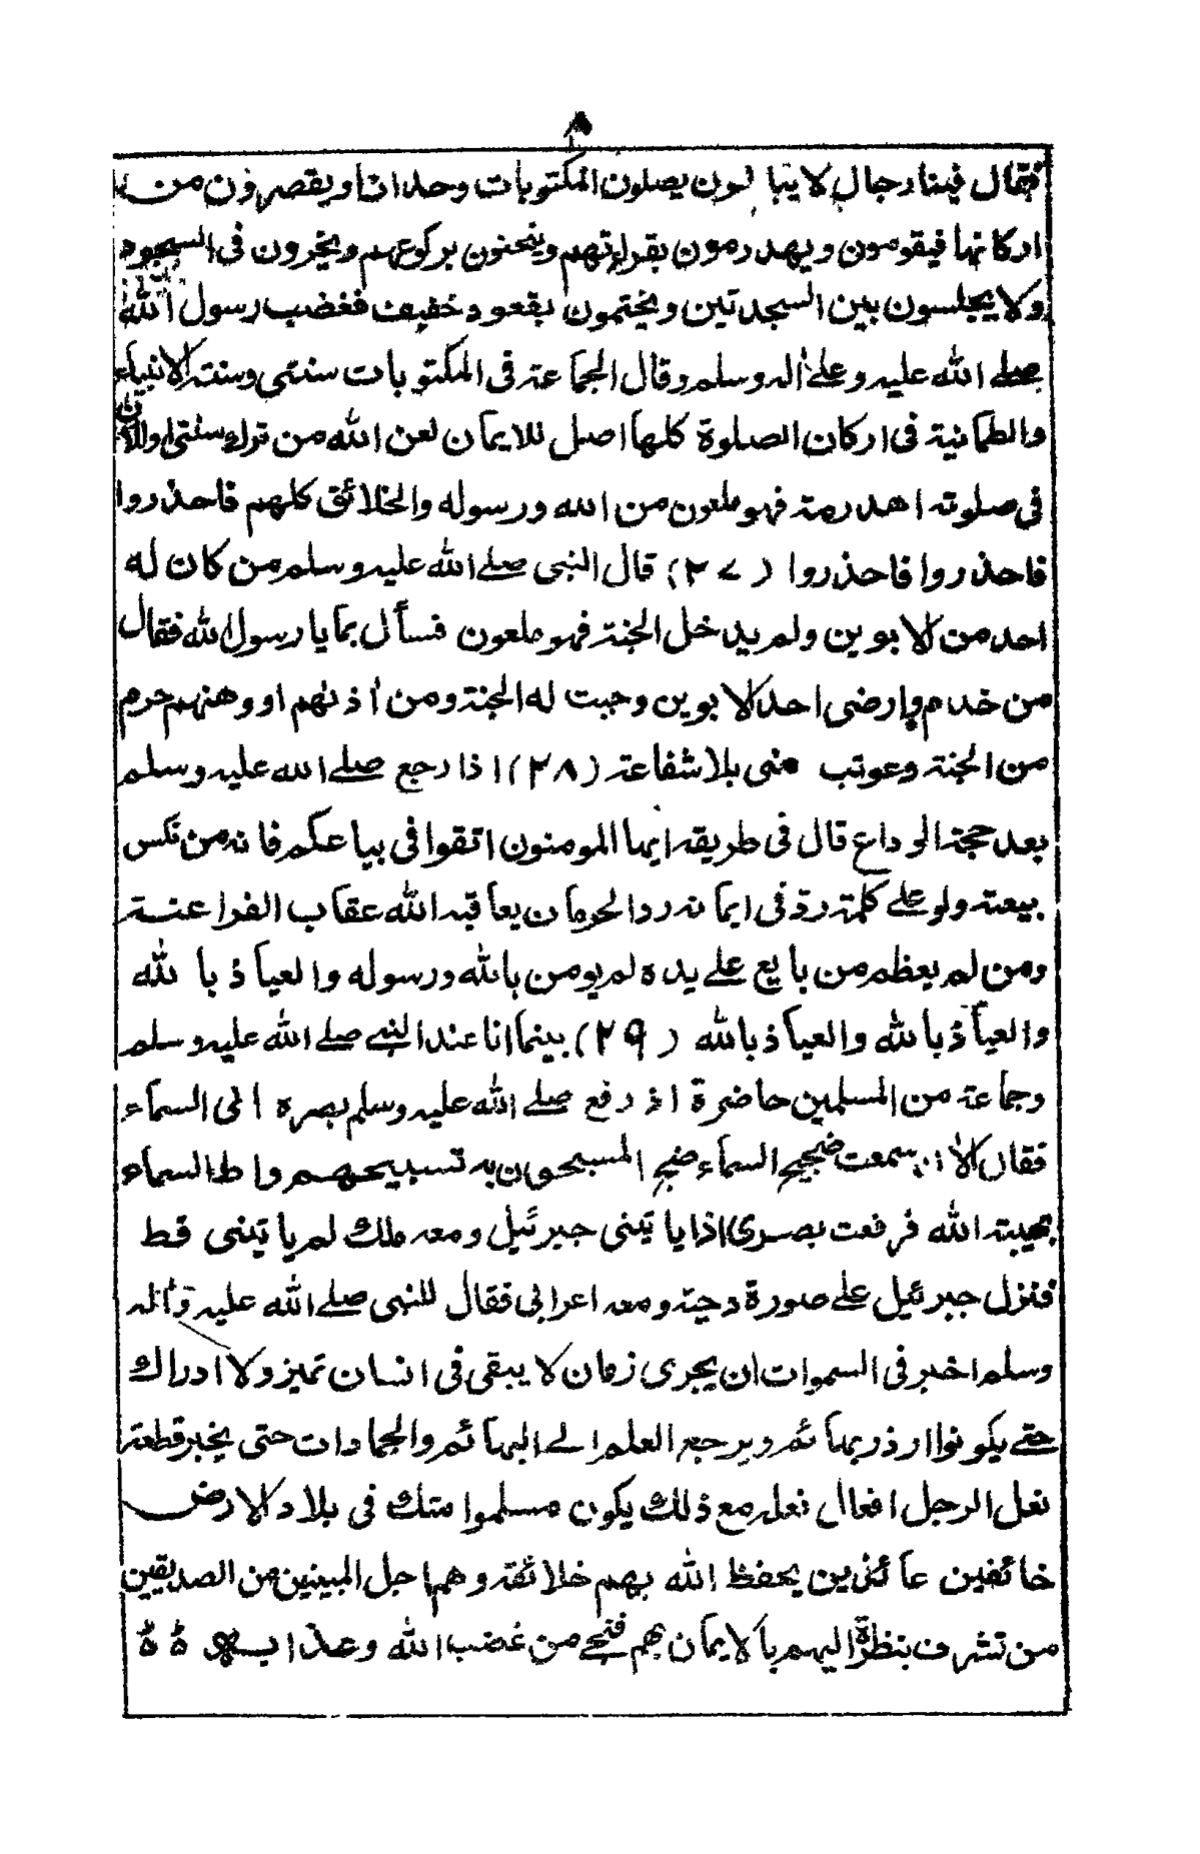 ٨
فقال فينا رجال لا يبا لون يصلون المكتوبات وحدانا ويقصرون من
اركانها فيقومون ويهدرمون بقراءتهم وينحنون بركوعهم ويخرون فى السجود
ولا يجلسون بين السجدتين ويختمون بقعود خفيف فغضب رسول الله
صلے الله عليه وعلےٰ اله وسلم وقال الجماعة فى المكتوبات سنتى وسنة الانبياء
والطمانية فى اركان الصلوة كلها اصل للايمان لعن الله من ترك سنتى
فى صلوته اهدرمة فهو ملعون من الله ورسوله والخلائق كلهم فاحذروا
فاحذروا فاحذروا (٢٧) قال النبى صلے الله عليه وسلم من كان له
احد من الابوين ولم يدخل الجنة فهو ملعون فسأل بما يا رسول الله فقال
من خدم وارضى احد الابوين وجبت له الجنة ومن أذنهم او وهنهم حرم
من الجنة وعوتب منى بلا شفاعة (٢٨) اذا رجع صلے الله عليه وسلم
بعد حجة الوداع قال فى طريقه ايها المومنون اتقوا فى بياعكم فانه من نكس
بيعته ولو علے كلمة ردة فى ايمانه رد الحرمان يعاقبه الله عقاب الفراعنة
ومن لم يعظم من بايع علے يده لم يومن بالله ورسوله والعياذ با لله
والعياذ بالله والعياذ بالله (٢٩) بينما انا عند النبے صلے الله عليه وسلم
وجماعة من المسلمين حاضرة اذ رفع صلے الله عليه وسلم بصره الى السماء
فقال الان سمعت ضجيج السماء ضج المسبحون به تسبيحهم واط السماء
بهيبة الله فرفعت بصرى اذا ياتينى جبرئيل ومعه ملك لم ياتينى قط
فنزل جبرئيل علے صورة دحية ومعه اعرابى فقال للنبى صلے الله عليه وآله
وسلم اخبر فى السموات ان يجرى زمان لا يبقى فى انسان تميز ولا ادراك
حتے يكونوا ارذر بهائم ويرجع العلم الے البهائم والجمادات حتى يخبر قطعة
نعل الرجل افعال نعله مع ذلك يكون مسلموا متك فى بلاد الارض
خائفين عائذين يحفظ الله بهم خلائقه وهم اجل المبينين من الصديقين
من تشرف بنظرة اليهم بالايمان بهم فنجے من غضب الله وعذابه ة ة